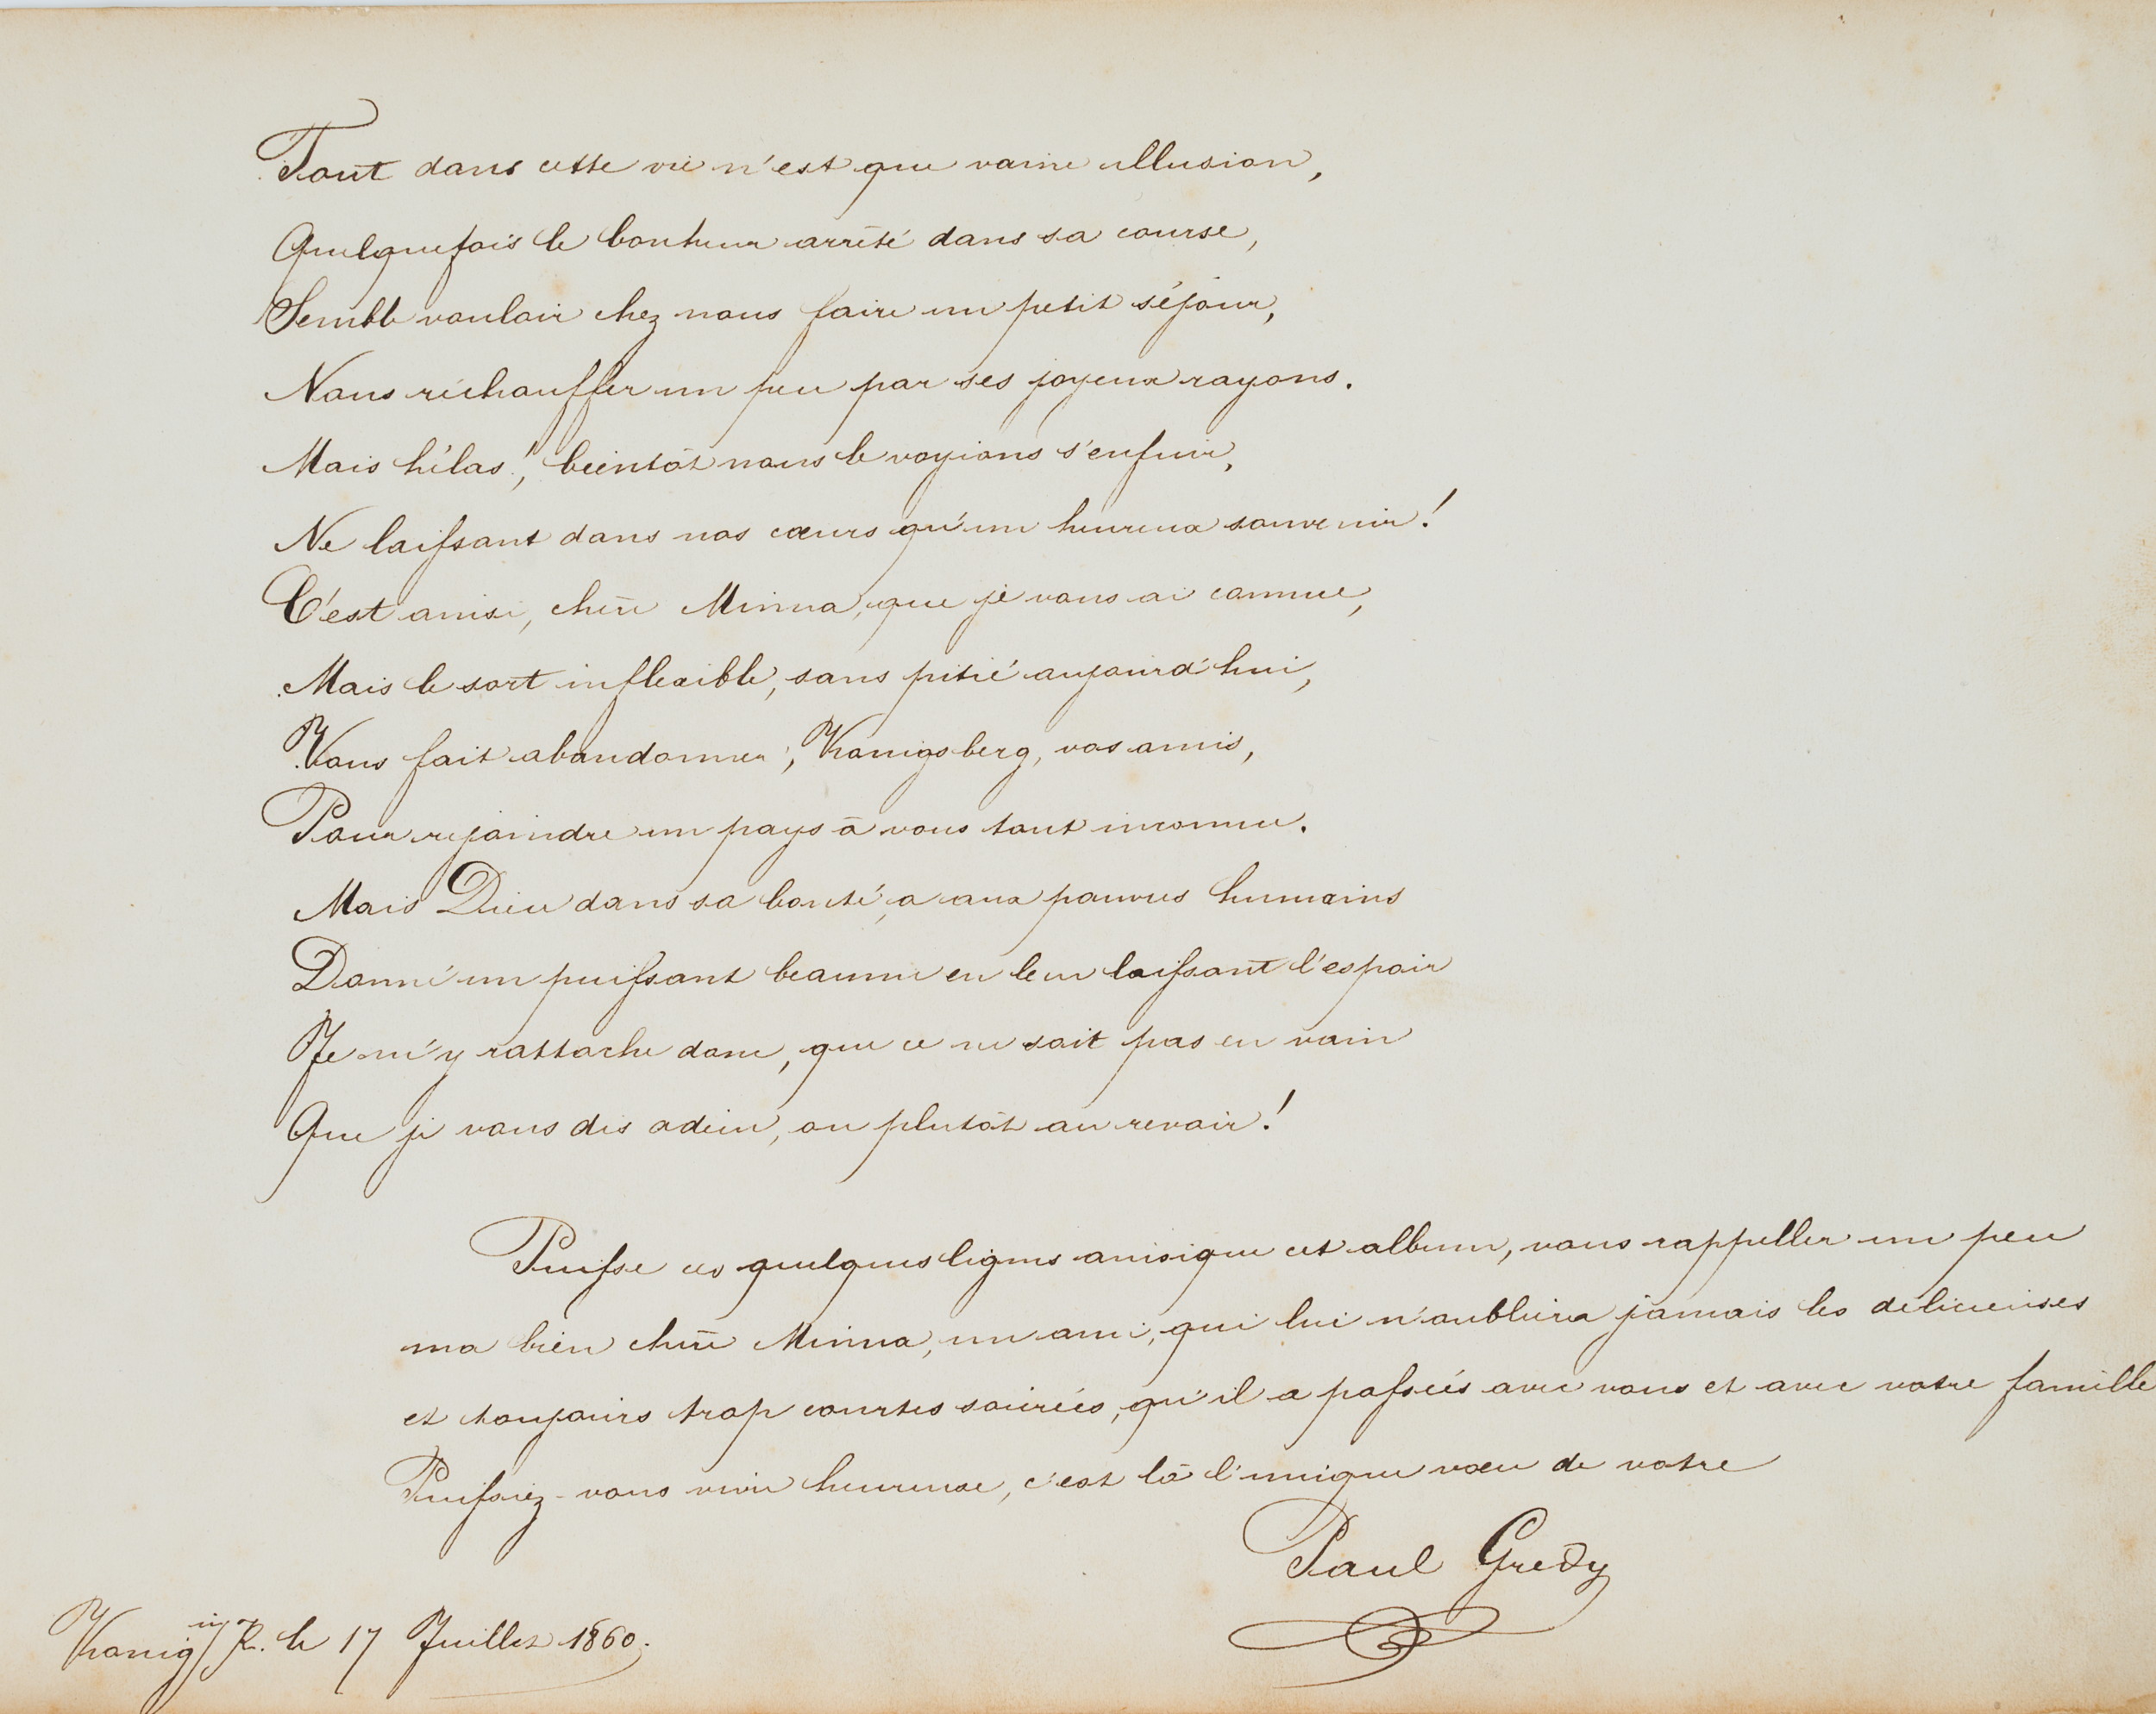 Tout dans cette vie n'est que vaine illusion,
Quelquefois le bonheur arrêté dans sa course,
Semble vouloir chez nous faire un petit séjour,
Nous réchauffer un peu par ses joyeux rayons.
Mais hélas!, bientôt nous le voyions s'enfuir,
Ne laissant dans nos cœurs qu'un heureux souvenir!
C'est ainsi, chère Minna, que je vous ai connue,
Mais le sort inflexible, sans pitié aujourd'hui,
Vous fait abandonner, Konigsberg, vos amis,
Pour rejoindre un pays à vous tout inconnu.
Mais Dieu dans sa bonté, a aux pauvres humains
Donné un puissant beaume en leur laissant l'espoir
Je m'y rattache donc, que ce ne soit pas en vain
Que je vous dis adieu, ou plutôt au revoir!
Puisse ces quelques lignes ainsi que cet album, vous rappeller un peu
ma bien chère Minna, un ami, qui lui n'oubliera jamais les délicieuses
et toujours trop courtes soirées, qu'il a passées avec vous et avec votre famille
Puissiez-vous vivre heureuse, c'est là l'unique vœu de votre
Paul Gredy
Konig i/P. le 17 Juillet 1860.